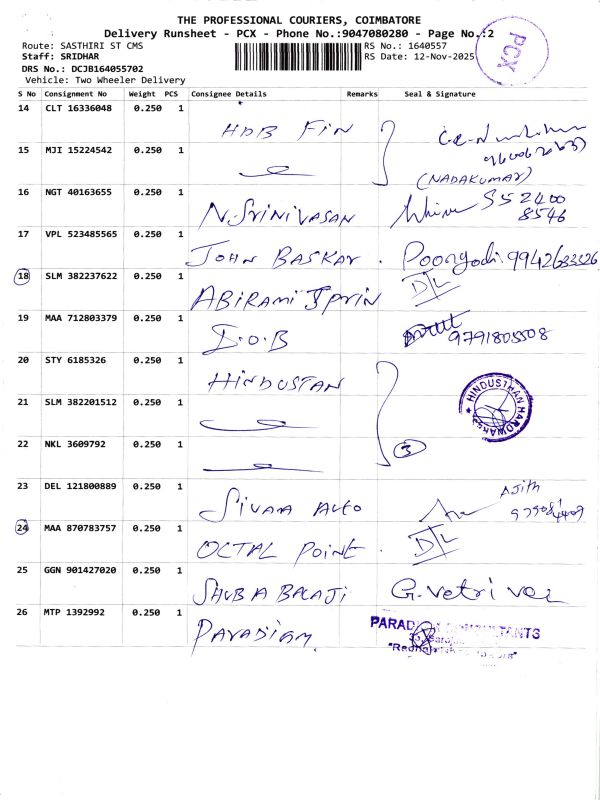 THE PROFESSIONAL COURIERS, COIMBATORE
Delivery Runsheet - PCX - Phone No.:9047080280 - Page No.:2
Route: SASTHIRI ST CMS
RS No.: 1640557
PCX
Staff: SRIDHAR
RS Date: 12-Nov-2025
DRS No.: DCJB164055702
Vehicle: Two Wheeler Delivery
S No Consignment No Weight PCS Consignee Details Remarks Seal & Signature
14 CLT 16336048 0.250 1 HDB FIN
15 MJI 15224542 0.250 1
(NADAKUMAR)
16 NGT 40163655 0.250 1 N.SRINIVASAN 952400
8546
17 VPL 523485565 0.250 1 JOHN BASKAR. Poongodi. 9942633326
18 SLM 382237622 0.250 1 ABIRAMI D/L
19 MAA 712803379 0.250 1 I.O.B 9791805508
20 STY 6185326 0.250 1 HINDUSTAN
HINDUSTHAN HARDWARES
21 SLM 382201512 0.250 1
22 NKL 3609792 0.250 1 3
23 DEL 121800889 0.250 1 SIVAM AUTO AJITH
24 MAA 870783757 0.250 1 OCTAL POINT. D/L
25 GGN 901427020 0.250 1 SHUBA BALAJI G.Vetri vel
26 MTP 1392992 0.250 1 PARADIGM.